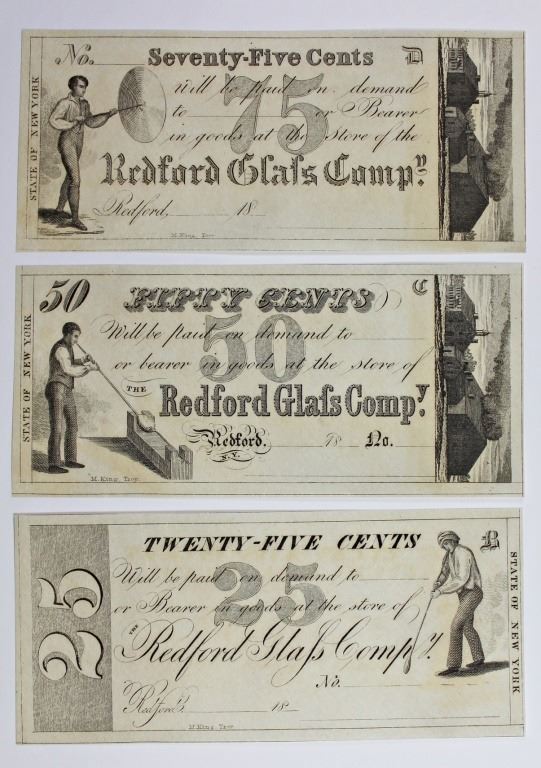 No. Seventy-Five Cents D
STATE OF NEW YORK
75
Will be paid on demand
to or Bearer
in goods at the Store of the
Redford Glaſs Compy.
Redford, 18
M. King, Troy
50 FIFTY CENTS C
STATE OF NEW YORK
50
Will be paid on demand to
or bearer in goods at the store of
THE
Redford Glaſs Compy.
Redford. 18 No.
N.Y.
M. King, Troy.
25
TWENTY-FIVE CENTS B
STATE OF NEW YORK
25
Will be paid on demand to
or Bearer in goods at the store of
THE Redford Glaſs Compy.
No.
Redford. 18
M. King, Troy.